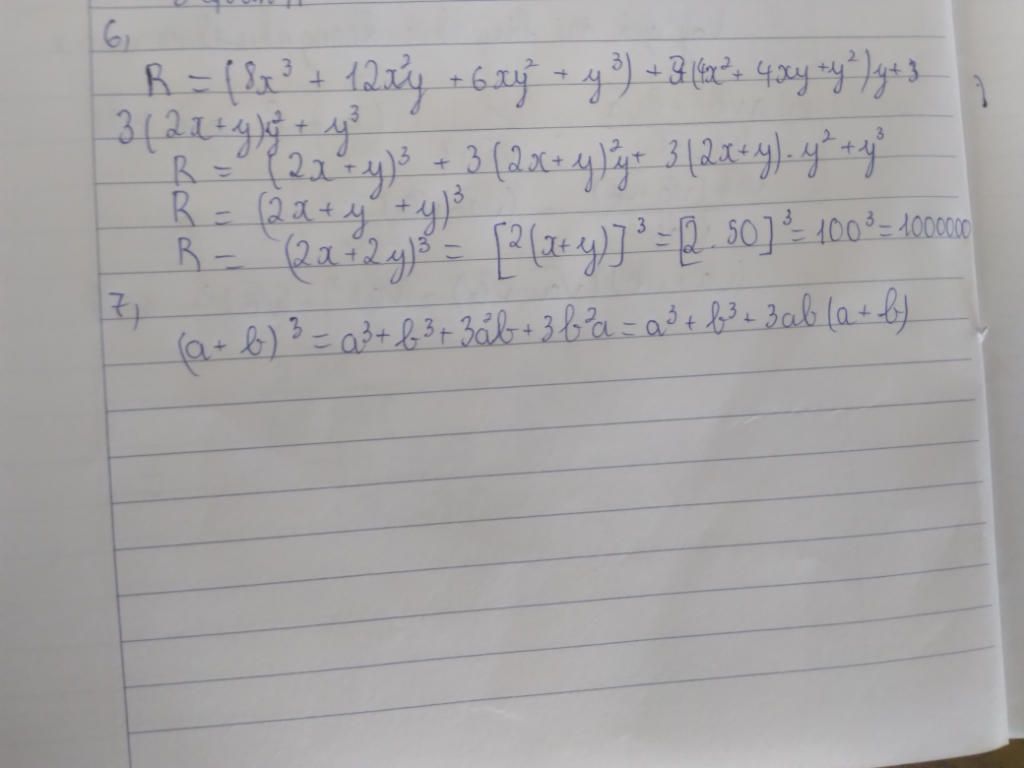 6,
R = (8x³ + 12x²y + 6xy² + y³) + 3(4x² + 4xy + y²)y + 3
3(2x+y)y² + y³
R = (2x+y)³ + 3(2x+y)²y + 3(2x+y).y² + y³
R = (2x+y+y)³
R = (2x+2y)³ = [2(x+y)]³ = [2.50]³ = 100³ = 1000000
7,
(a+b)³ = a³ + b³ + 3a²b + 3b²a = a³ + b³ + 3ab(a+b)